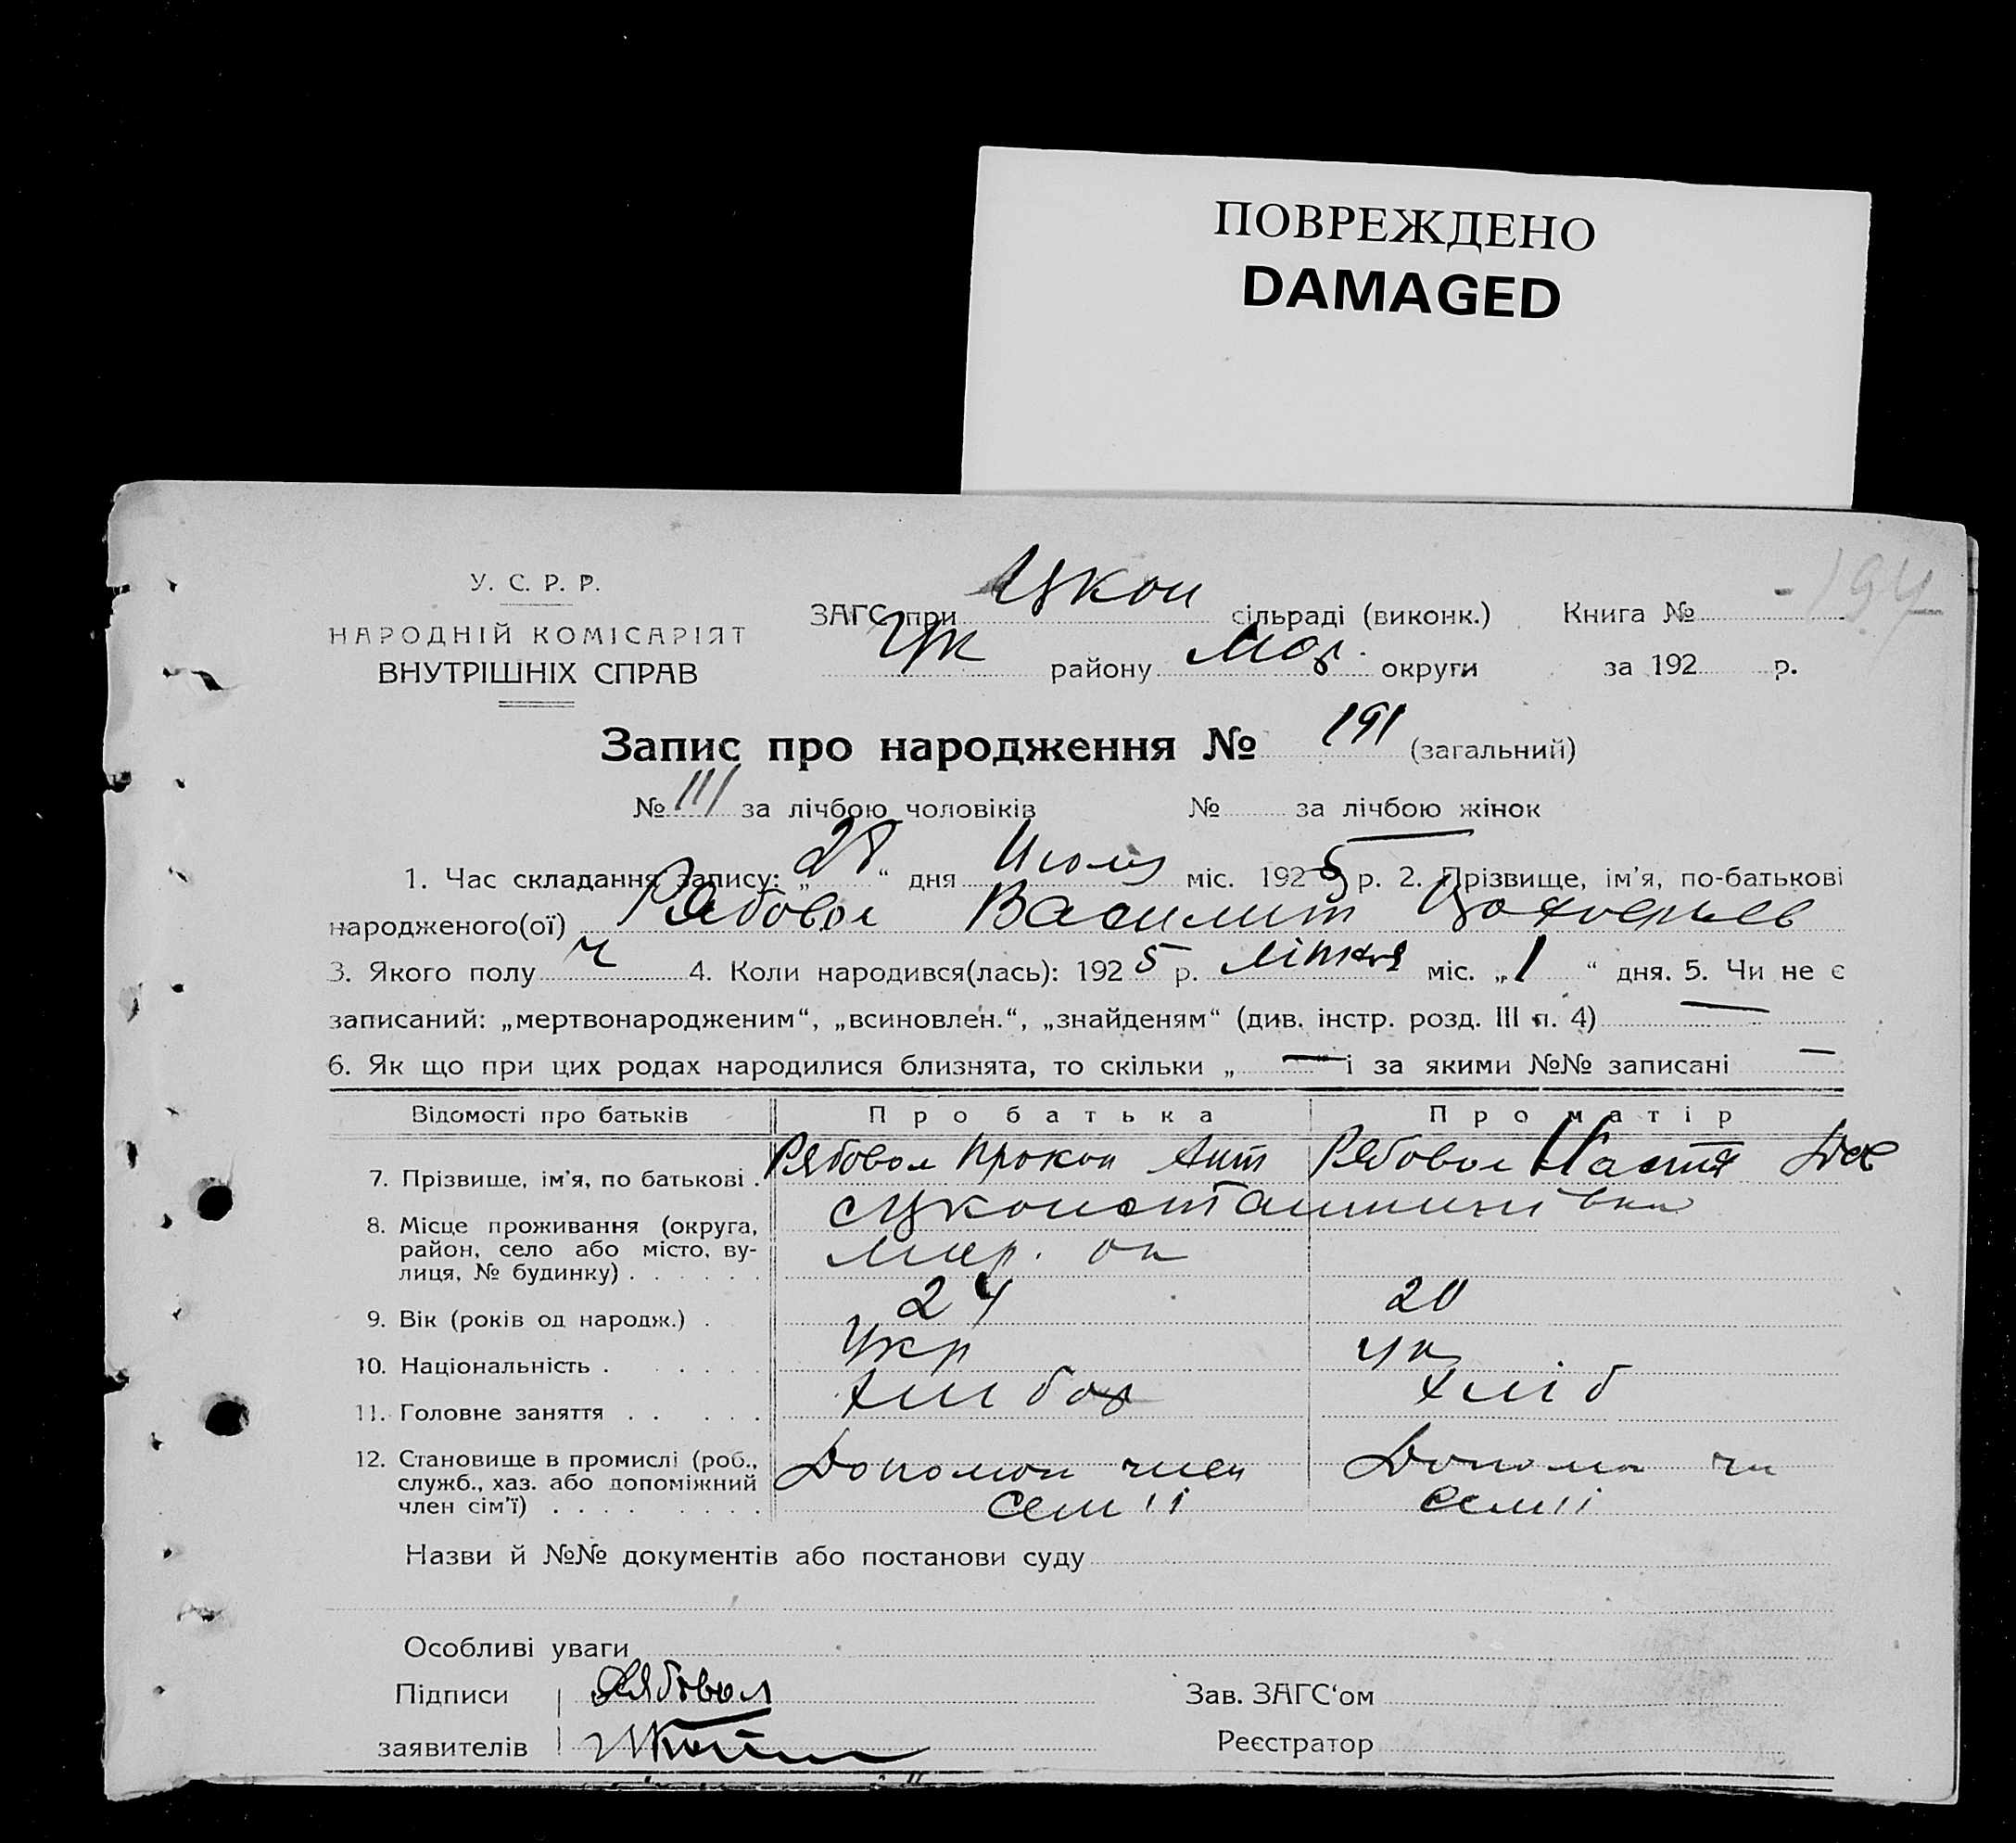 ПОВРЕЖДЕНО
DAMAGED
194
У. С. Р. Р.
НАРОДНІЙ КОМІСАРІЯТ
ВНУТРІШНІХ СПРАВ
ЗАГС при Цкон сільраді (виконк.) Книга №
району округи за 192 р.
Запис про народження № 191 (загальний)
№ 111 за лічбою чоловіків № за лічбою жінок
1. Час складання запису: „28“ дня Июля міс. 1925 р. 2. Прізвище, ім’я, по-батькові
народженого(ої) Рябовол
3. Якого полу ч 4. Коли народився(лась): 1925 р. міс. „1“ дня. 5. Чи не є
записаний: „мертвонародженим“, „всиновлен.“, „знайденям“ (див. інстр. розд. III п. 4) —
6. Як що при цих родах народилися близнята, то скільки „ — і за якими №№ записані —
Відомості про батьків Про батька Про матір
7. Прізвище, ім’я, по батькові . Рябовол Прокоп Ант Рябовол Настя
8. Місце проживання (округа,
район, село або місто, ву-
лиця, № будинку) . . . . . .
9. Вік (років од народж.) . 24 20
10. Національність . . . . . Укр Ук
11. Головне заняття . . . . . Хлібор Хліб
12. Становище в промислі (роб.,
служб., хаз. або допоміжний
член сім’ї) . . . . . . . . Допомож член семії Допомо чл семії
Назви й №№ документів або постанови суду
Особливі уваги
Підписи Рябовол Зав. ЗАГС‘ом
заявителів Реєстратор